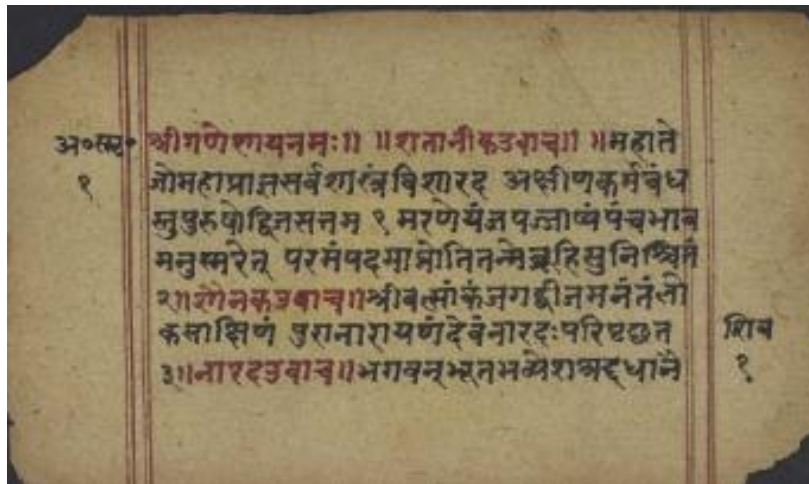 अ॰स्मृ॰ श्रीगणेशायनमः॥ ॥शतानीकउवाच॥ ॥महाते
१ जोमहाप्राज्ञसर्वशास्त्रविशारद अक्षीणकर्मबंध
स्तुपुरुषोद्विजसत्तम १ मरणेयंजपज्जाप्यंपंचभाव
मनुस्मरेत् परमंपदमाप्नोतितन्मेब्रूहिसुनिश्चितं
२॥शौनकउवाच॥श्रीवत्सांकंजगद्बीजमनंतंलो
कसाक्षिणं पुरानारायणंदेवंनारदःपरिपृछत शिव
३॥नारदउवाच॥भगवन्भूतभव्येश १